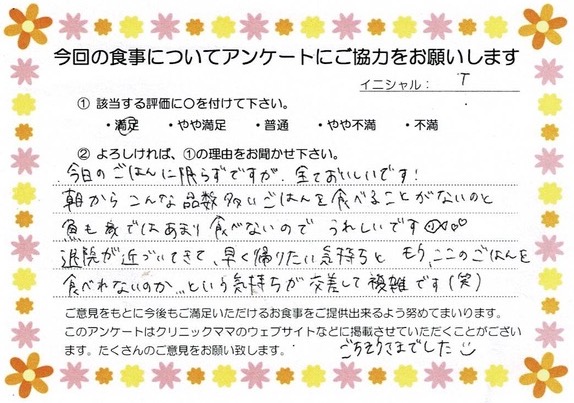 今回の食事についてアンケートにご協力をお願いします
イニシャル： T
① 該当する評価に○を付けて下さい。
・満足 ・やや満足 ・普通 ・やや不満 ・不満
② よろしければ、①の理由をお聞かせ下さい。
今日のごはんに限らずですが、全ておいしいです！
朝からこんな品数多いごはんを食べることがないのと
魚も家ではあまり食べないので うれしいです
退院が近づいてきて、早く帰りたい気持ちと もう、ここのごはんを
食べれないのか…という気持ちが交差して複雑です(笑)
ご意見をもとに今後もご満足いただけるお食事をご提供出来るよう努めてまいります。
このアンケートはクリニックママのウェブサイトなどに掲載させていただくことがござい
ます。たくさんのご意見をお願い致します。
ごちそうさまでした